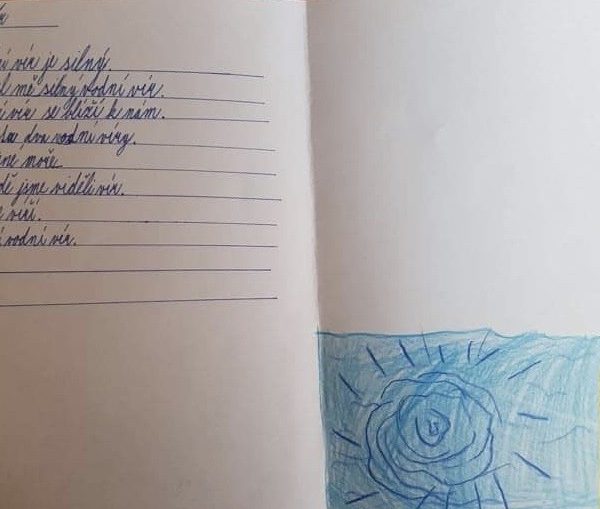 vír je silný.
mě silný vodní vír.
vír se blíží k nám.
dva vodní víry.
moře.
jsme viděli vír.
víří.
vodní vír.